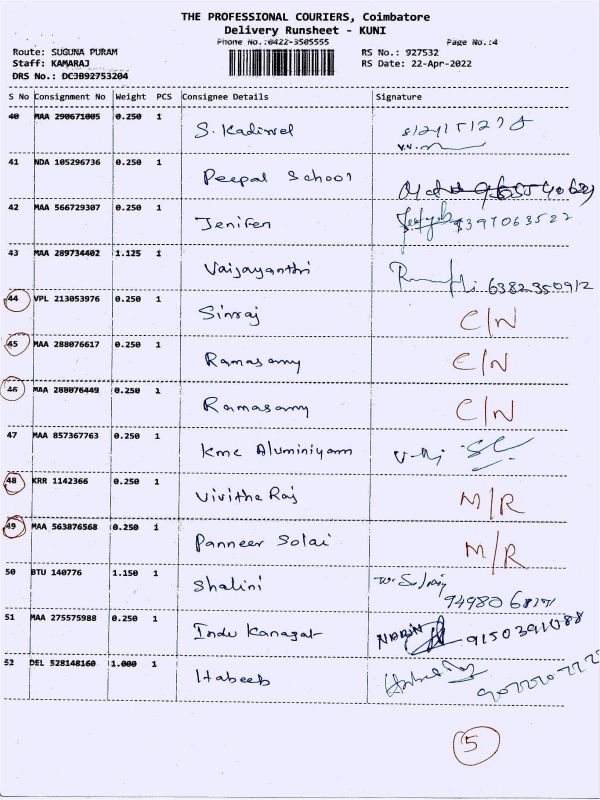 THE PROFESSIONAL COURIERS, Coimbatore
Delivery Runsheet - KUNI
Phone No.:0422-3505555 Page No.:4
Route: SUGUNA PURAM RS No.: 927532
Staff: KAMARAJ RS Date: 22-Apr-2022
DRS No.: DC3B92753204
S No Consignment No Weight PCS Consignee Details Signature
40 MAA 290671005 0.250 1
S. Kadirvel
41 NDA 105296736 0.250 1
Peepal School
42 MAA 566729307 0.250 1
Jenifer
43 MAA 289734402 1.125 1
Vaijayanthi 6382350912
44 VPL 213053976 0.250 1
Sinraj C/N
45 MAA 288076617 0.250 1
Ramasamy C/N
46 MAA 288076449 0.250 1
Ramasamy C/N
47 MAA 857367763 0.250 1
Kmc Aluminiyam
48 KRR 1142366 0.250 1
Vivitha Raj M/R
49 MAA 563876568 0.250 1
Panneer Solai M/R
50 BTU 140776 1.150 1
Shalini
51 MAA 275575988 0.250 1
Indu Kanagal
52 DEL 528148160 1.000 1
Habeeb
5